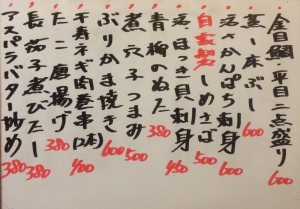 金目鯛 平目二点盛り 600
蒸し床ぶし 600
活かんぱち刺身 600
自家製しめさば 500
活ほっき貝刺身 450
青柳のぬた 380
煮穴子つまみ 500
ぶりかま焼き 600
千寿ネギ肉巻串(2本) 400
たこ唐揚げ 380
長茄子煮びたし 380
アスパラバター炒め 380